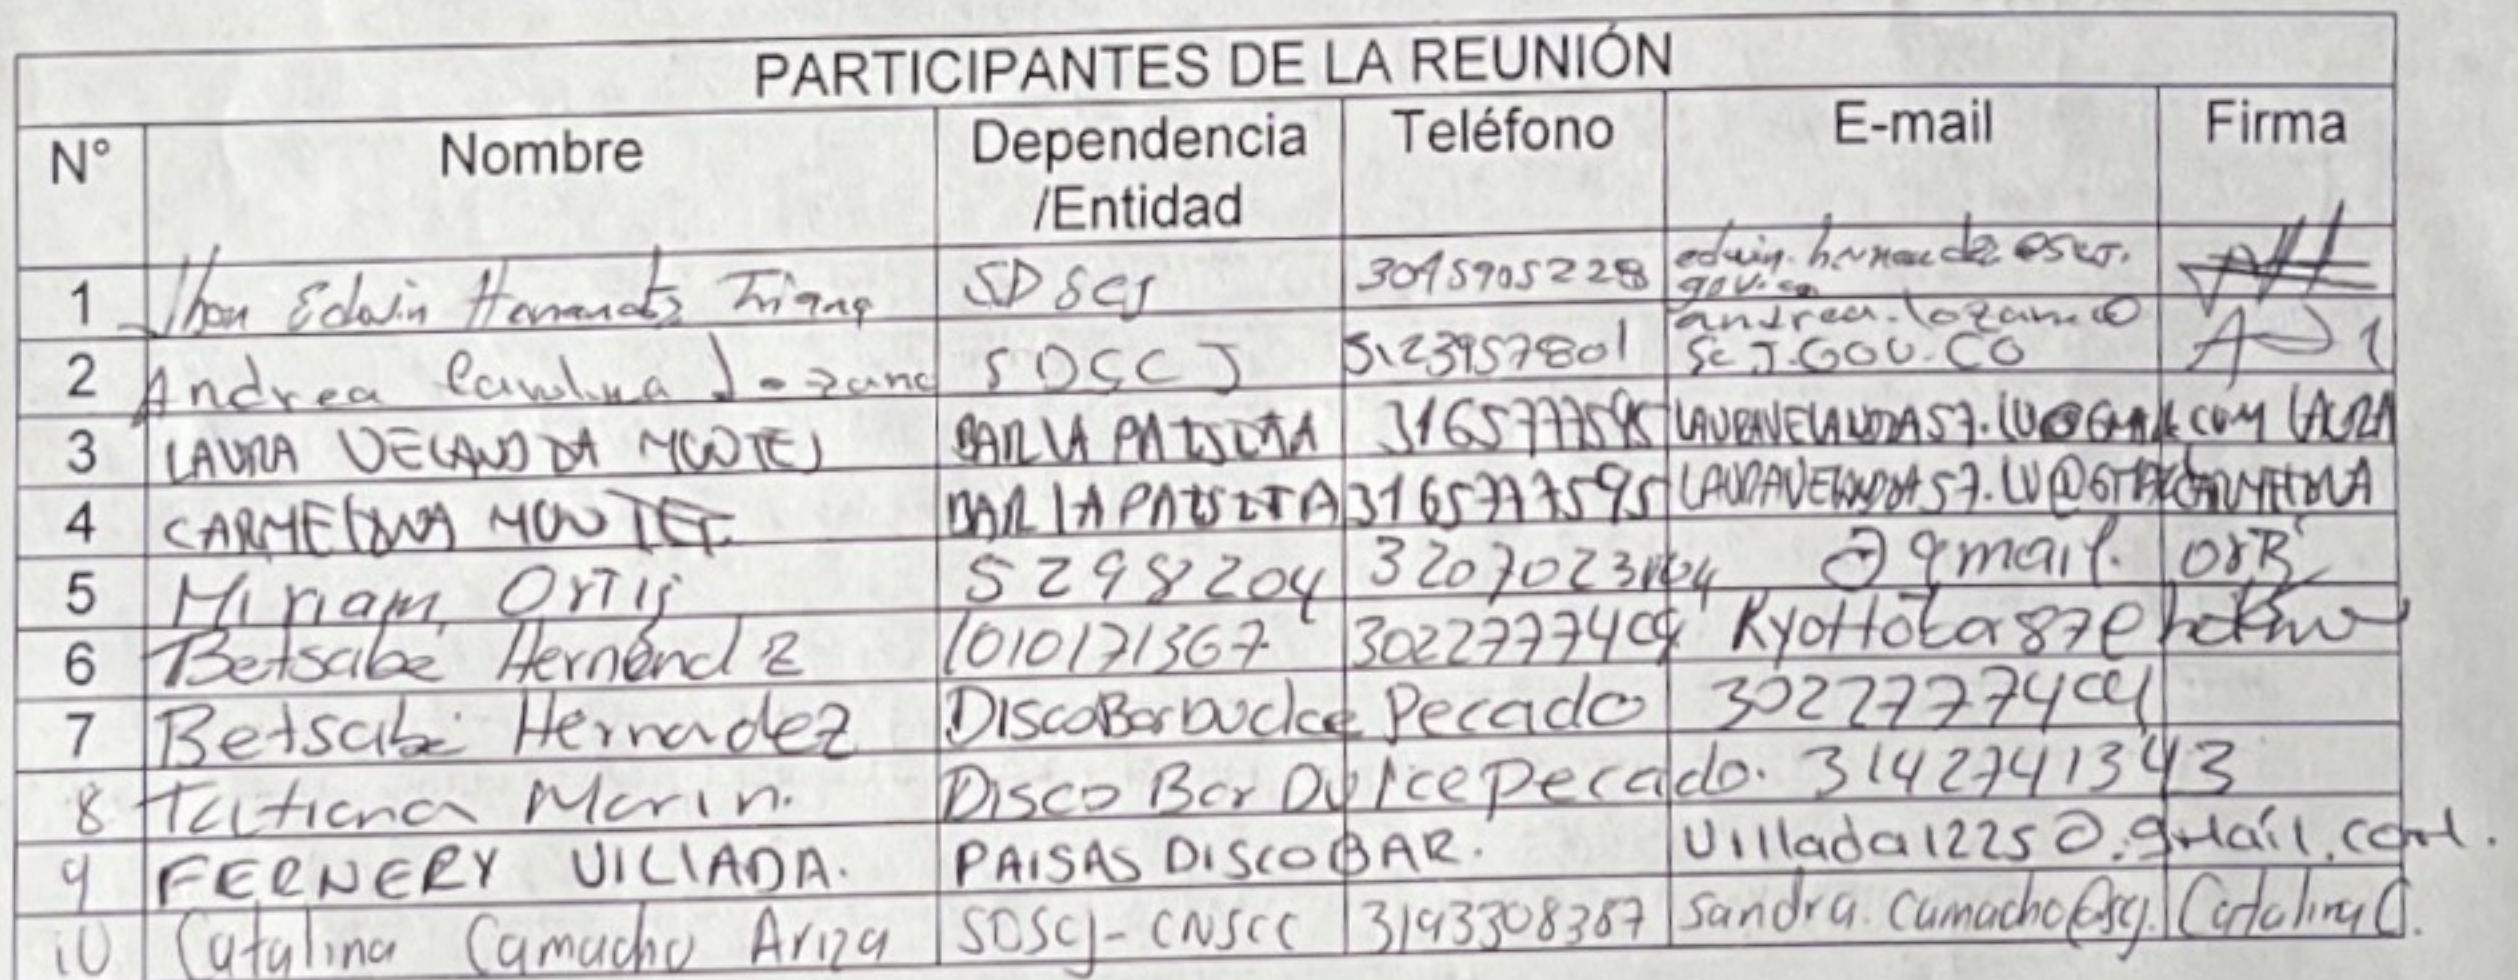 PARTICIPANTES DE LA REUNIÓN
N° Nombre Dependencia /Entidad Teléfono E-mail Firma
1 Jhon Edwin Hernandez Triana SDSCJ 3045905228
gov.co
2 Andrea Carolina Lozano SDSCJ 3123957801 andrea.lozano@
SCJ.GOV.CO
3 LAURA VELANDIA MONTEJ BAR LA PAISITA 3165777595 LAURAVELANDIA57.LV@GMAIL.COM LAURA
4 CARMELINA MONTEJ BAR LA PAISITA 3165777595 LAURAVELANDIA57.LV@GMAIL CARMELINA
5 Miriam Ortiz 5298204 @ gmail.
6 Betsabe Hernández 1010171367 Kyottoka87@
7 Betsabe Hernadez DiscoBar Dulce Pecado
8 Tatiana Marin. Disco Bar Dulce Pecado. 3142741343
9 FERNERY VILLADA. PAISAS DISCO BAR. Villada1225@.gmail.com.
10 Catalina Camacho Ariza SDSCJ-CNSCC 3193308387 sandra.camacho@scj. Catalina C.